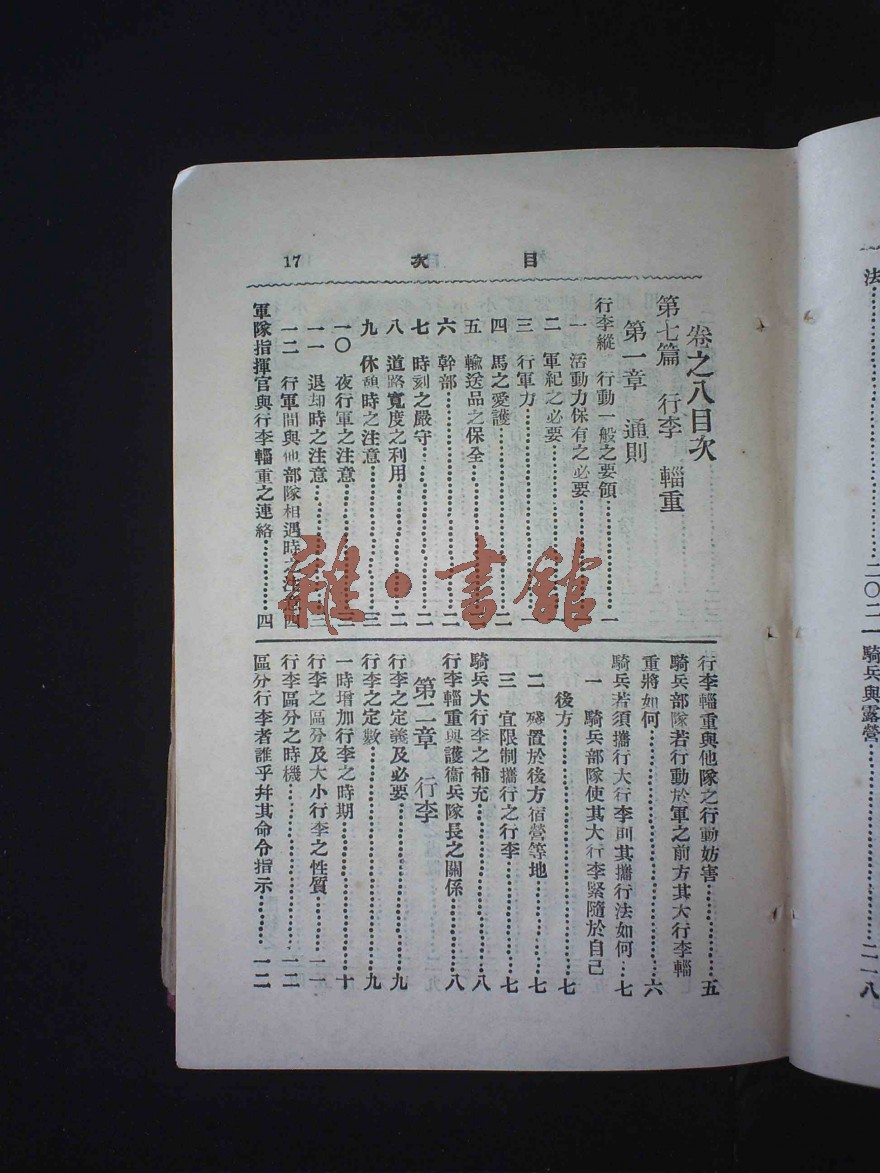 目 次 17
卷之八目次
第七篇 行李 輜重
第一章 通則
行李縱 行動一般之要領…………一
一 活動力保有之必要…………一
二 軍紀之必要…………一
三 行軍力…………一
四 馬之愛護…………二
五 輸送品之保全…………二
六 幹部…………二
七 時刻之嚴守…………二
八 道路寬度之利用…………二
九 休憩時之注意…………三
一〇 夜行軍之注意…………三
一一 退却時之注意…………三
一二 行軍間與他部隊相遇時之注意…四
軍隊指揮官與行李輜重之連絡…………四
行李輜重與他隊之行動妨害…………五
騎兵部隊若行動於軍之前方其大行李輜
重將如何…………六
騎兵若須攜行大行李則其攜行法如何…七
一 騎兵部隊使其大行李緊隨於自己
後方…………七
二 殘置於後方宿營等地…………七
三 宜限制攜行之行李…………七
騎兵大行李之補充…………八
行李輜重與護衞兵隊長之關係…………八
第二章 行李
行李之定義及必要…………九
行李之定數…………九
一時增加行李之時期…………十
行李之區分及大小行李之性質…………一一
行李區分之時機…………一二
區分行李者誰乎幷其命令指示…………一二
法…………二〇二
一 騎兵與露營…………二一八
雜·書館